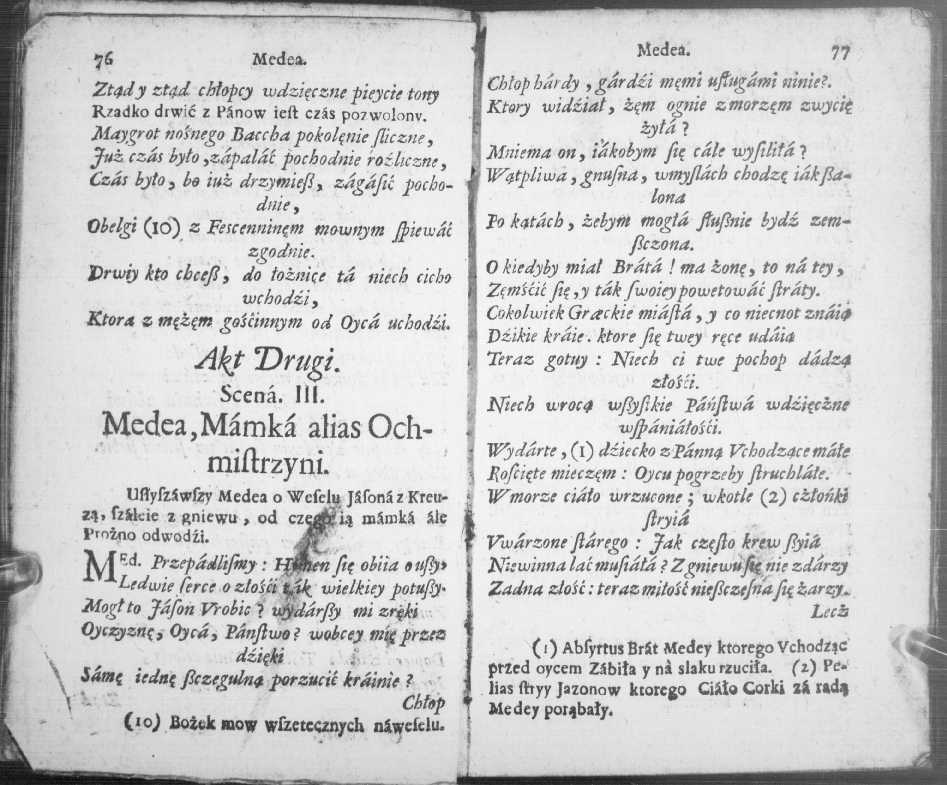 76 Medea.
Ztąd y ztąd chłopcy wdzięczne pieycie tony
Rzadko drwić z Pánow ieſt czás pozwolony.
Maygrot nośnego Baccha pokolęnie ſliczne,
Już czás było, zápaláć pochodnie roźliczne,
Czás było, bo iuż drzymieß, zágáſić pocho-
dnie,
Obelgi (10) z Feſcenninęm mownym ſpiewáć
zgodnie.
Drwiy kto chceß, do łożnice tá niech cicho
wchodźi,
Ktora z mężęm gośćinnym od Oycá uchodźi.
Akt Drugi.
Scená. III.
Medea, Mámká alias Och-
miſtrzyni.
Uſłyſzáwſzy Medea o Weſelu Jáſoná z Kreu-
zą, száleie z gniewu, od czego ią mámká ále
Prożno odwodźi.
MEd. Przepádliſmy: Hymen ſię obiia o ußy,
Ledwie ſerce o złośći ták wielkiey potußy.
Mogł to Jáſon Vrobic? wydárßy mi zręki
Oyczyznę, Oycá, Páńſtwo? wobcey mię przez
dźięki
Sámę iednę ßczegulną porzucić kráinie?
Chłop
(10) Bożek mow wſzetecznych náweſelu.
Medea. 77
Chłop hárdy, gárdźi męmi uſługámi ninie?
Ktory widźiał, żęm ognie z morzęm zwycię
żyłá?
Mniema on, iákobym ſię cále wyſiliłá?
Wątpliwa, gnuſna, wmyſlách chodzę iák ßa-
lona
Po kątách, żebym mogłá ſłuſnie bydź zem-
ßczona.
O kiedyby miał Brátá! ma żonę, to ná tey,
Zęmśćić ſię, y ták ſwoiey powetowáć ſtráty.
Cokolwiek Græckie miáſtá, y co niecnot znáią
Dźikie kráie. ktore ſię twey ręce udáią
Teraz gotuy: Niech ci twe pochop dádzą
złośći.
Niech wrocą wßyſtkie Páńſtwá wdzięczne
wſpániáłośći.
Wydárte, (1) dźiecko z Pánną Vchodzące máłe
Rośćięte mieczęm: Oycu pogrzeby ſtruchláłe.
W morze ciáło wrzucone; wkotle (2) członki
ſtryiá
Vwárzone ſtárego: Jak częſto krew ßyiá
Niewinna lać muſiáłá? Z gniewu ſię nie zdárzy
Zadna złość: teraz miłość nießczeſna ſię żarzy.
Lecz
(1) Abſyrtus Brát Medey ktorego Vchodząc
przed oycem Zábiła y ná slaku rzuciła. (2) Pe-
lias ſtryy Jazonow ktorego Ciáło Corki zá radą
Medey porąbały.